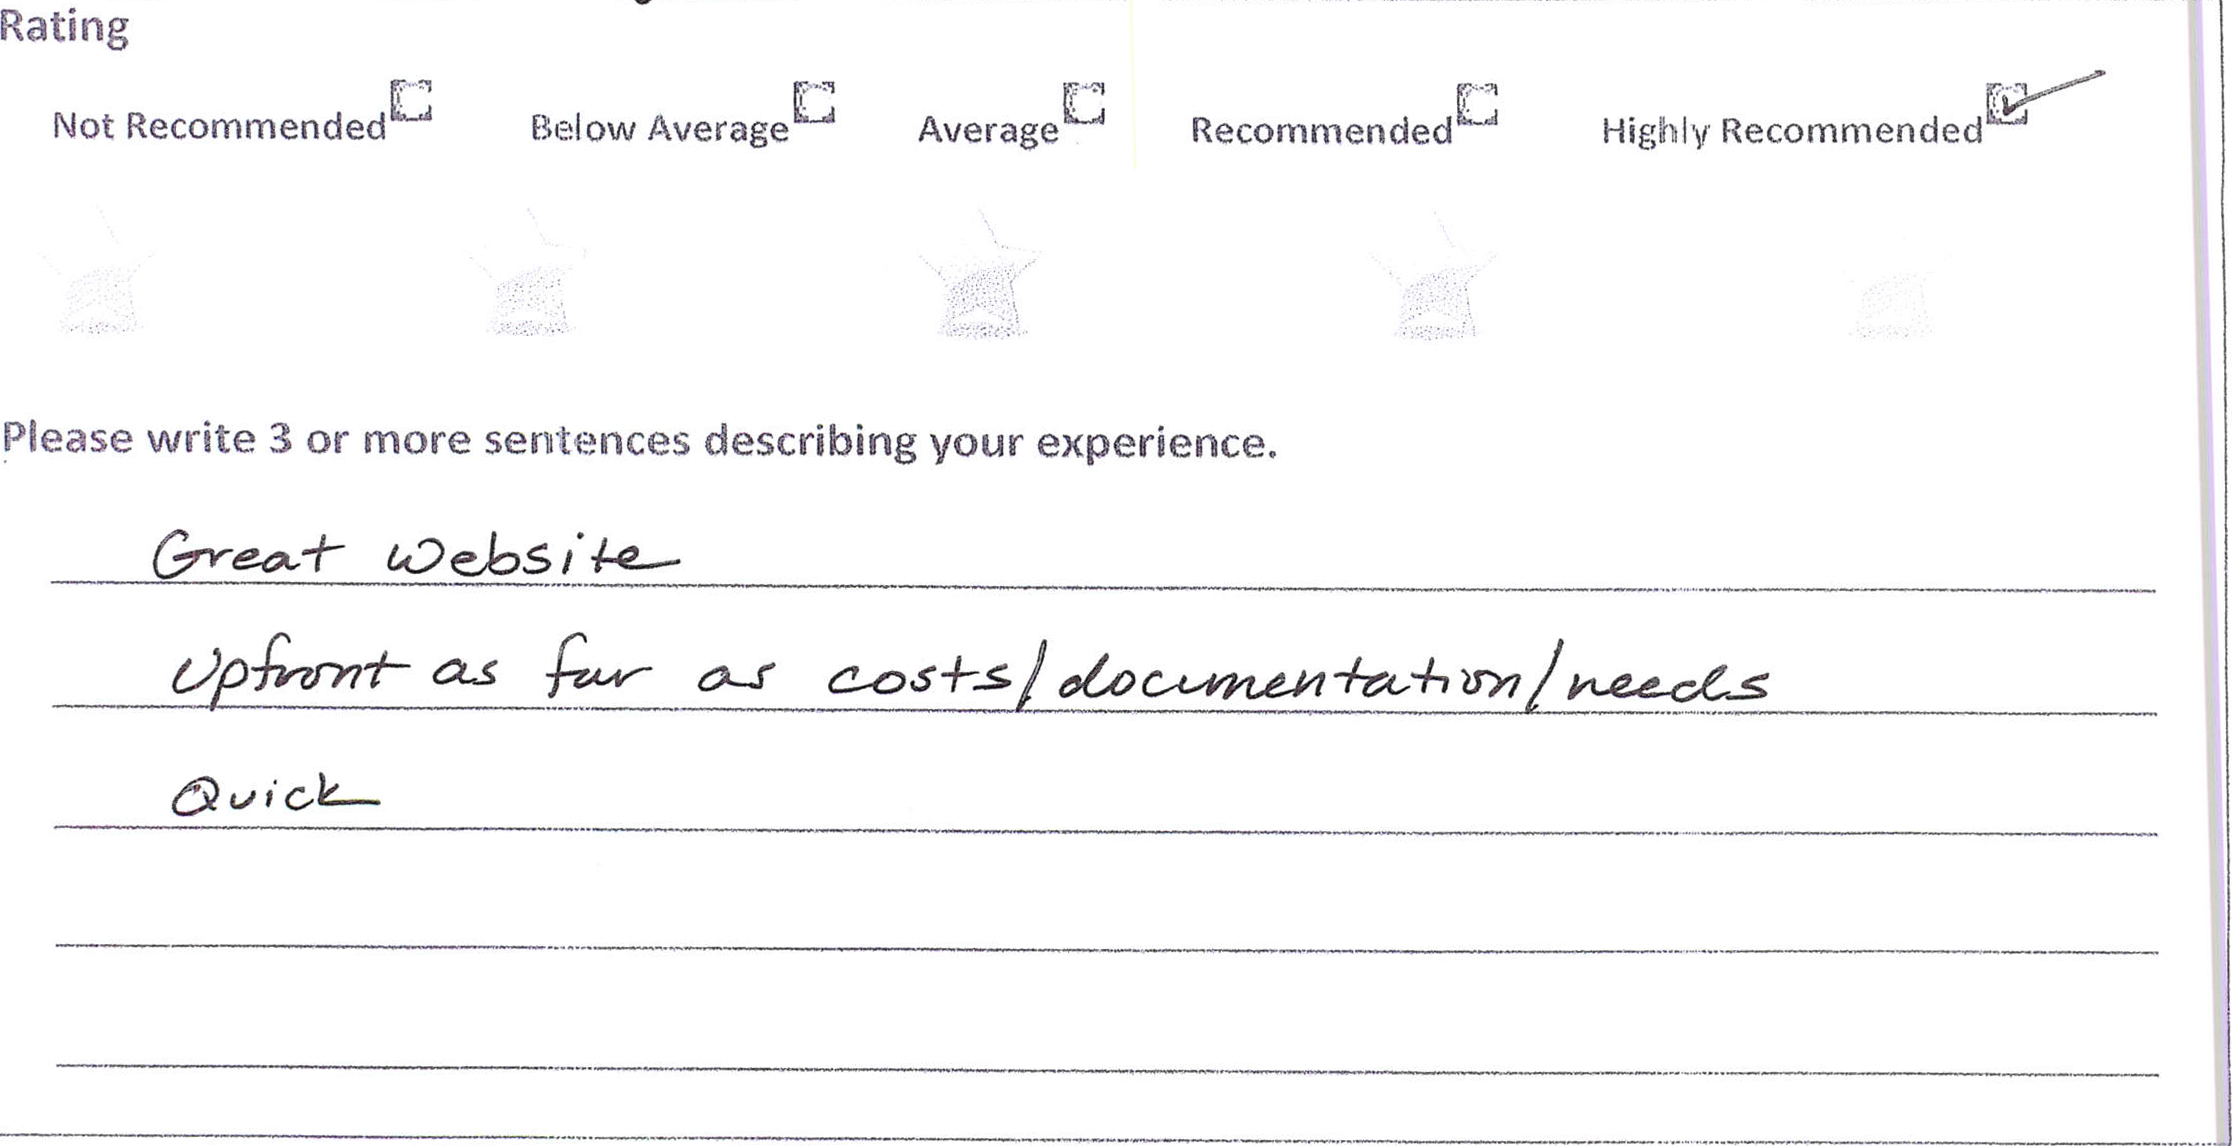 Rating
Not Recommended Below Average Average Recommended Highly Recommended
Please write 3 or more sentences describing your experience.
Great Website
Upfront as far as costs/documentation/needs
Quick